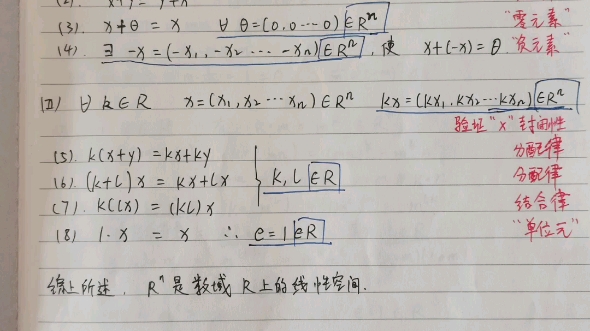 (3). x+θ = x ∀ θ=(0,0…0) ∈Rⁿ "零元素"
(4). ∃ -x=(-x₁,-x₂ … -xₙ) ∈Rⁿ, 使 x+(-x)=θ "负元素"
(Ⅱ) ∀ k∈R x=(x₁,x₂…xₙ)∈Rⁿ kx=(kx₁,kx₂…kxₙ)∈Rⁿ
验证"x"封闭性
(5). k(x+y)=kx+ky 分配律
(6). (k+l)x = kx+lx } k,l ∈R 分配律
(7). k(lx)=(kl)x 结合律
(8) 1·x = x ∴ e=1∈R "单位元"
综上所述. Rⁿ是数域R上的线性空间.